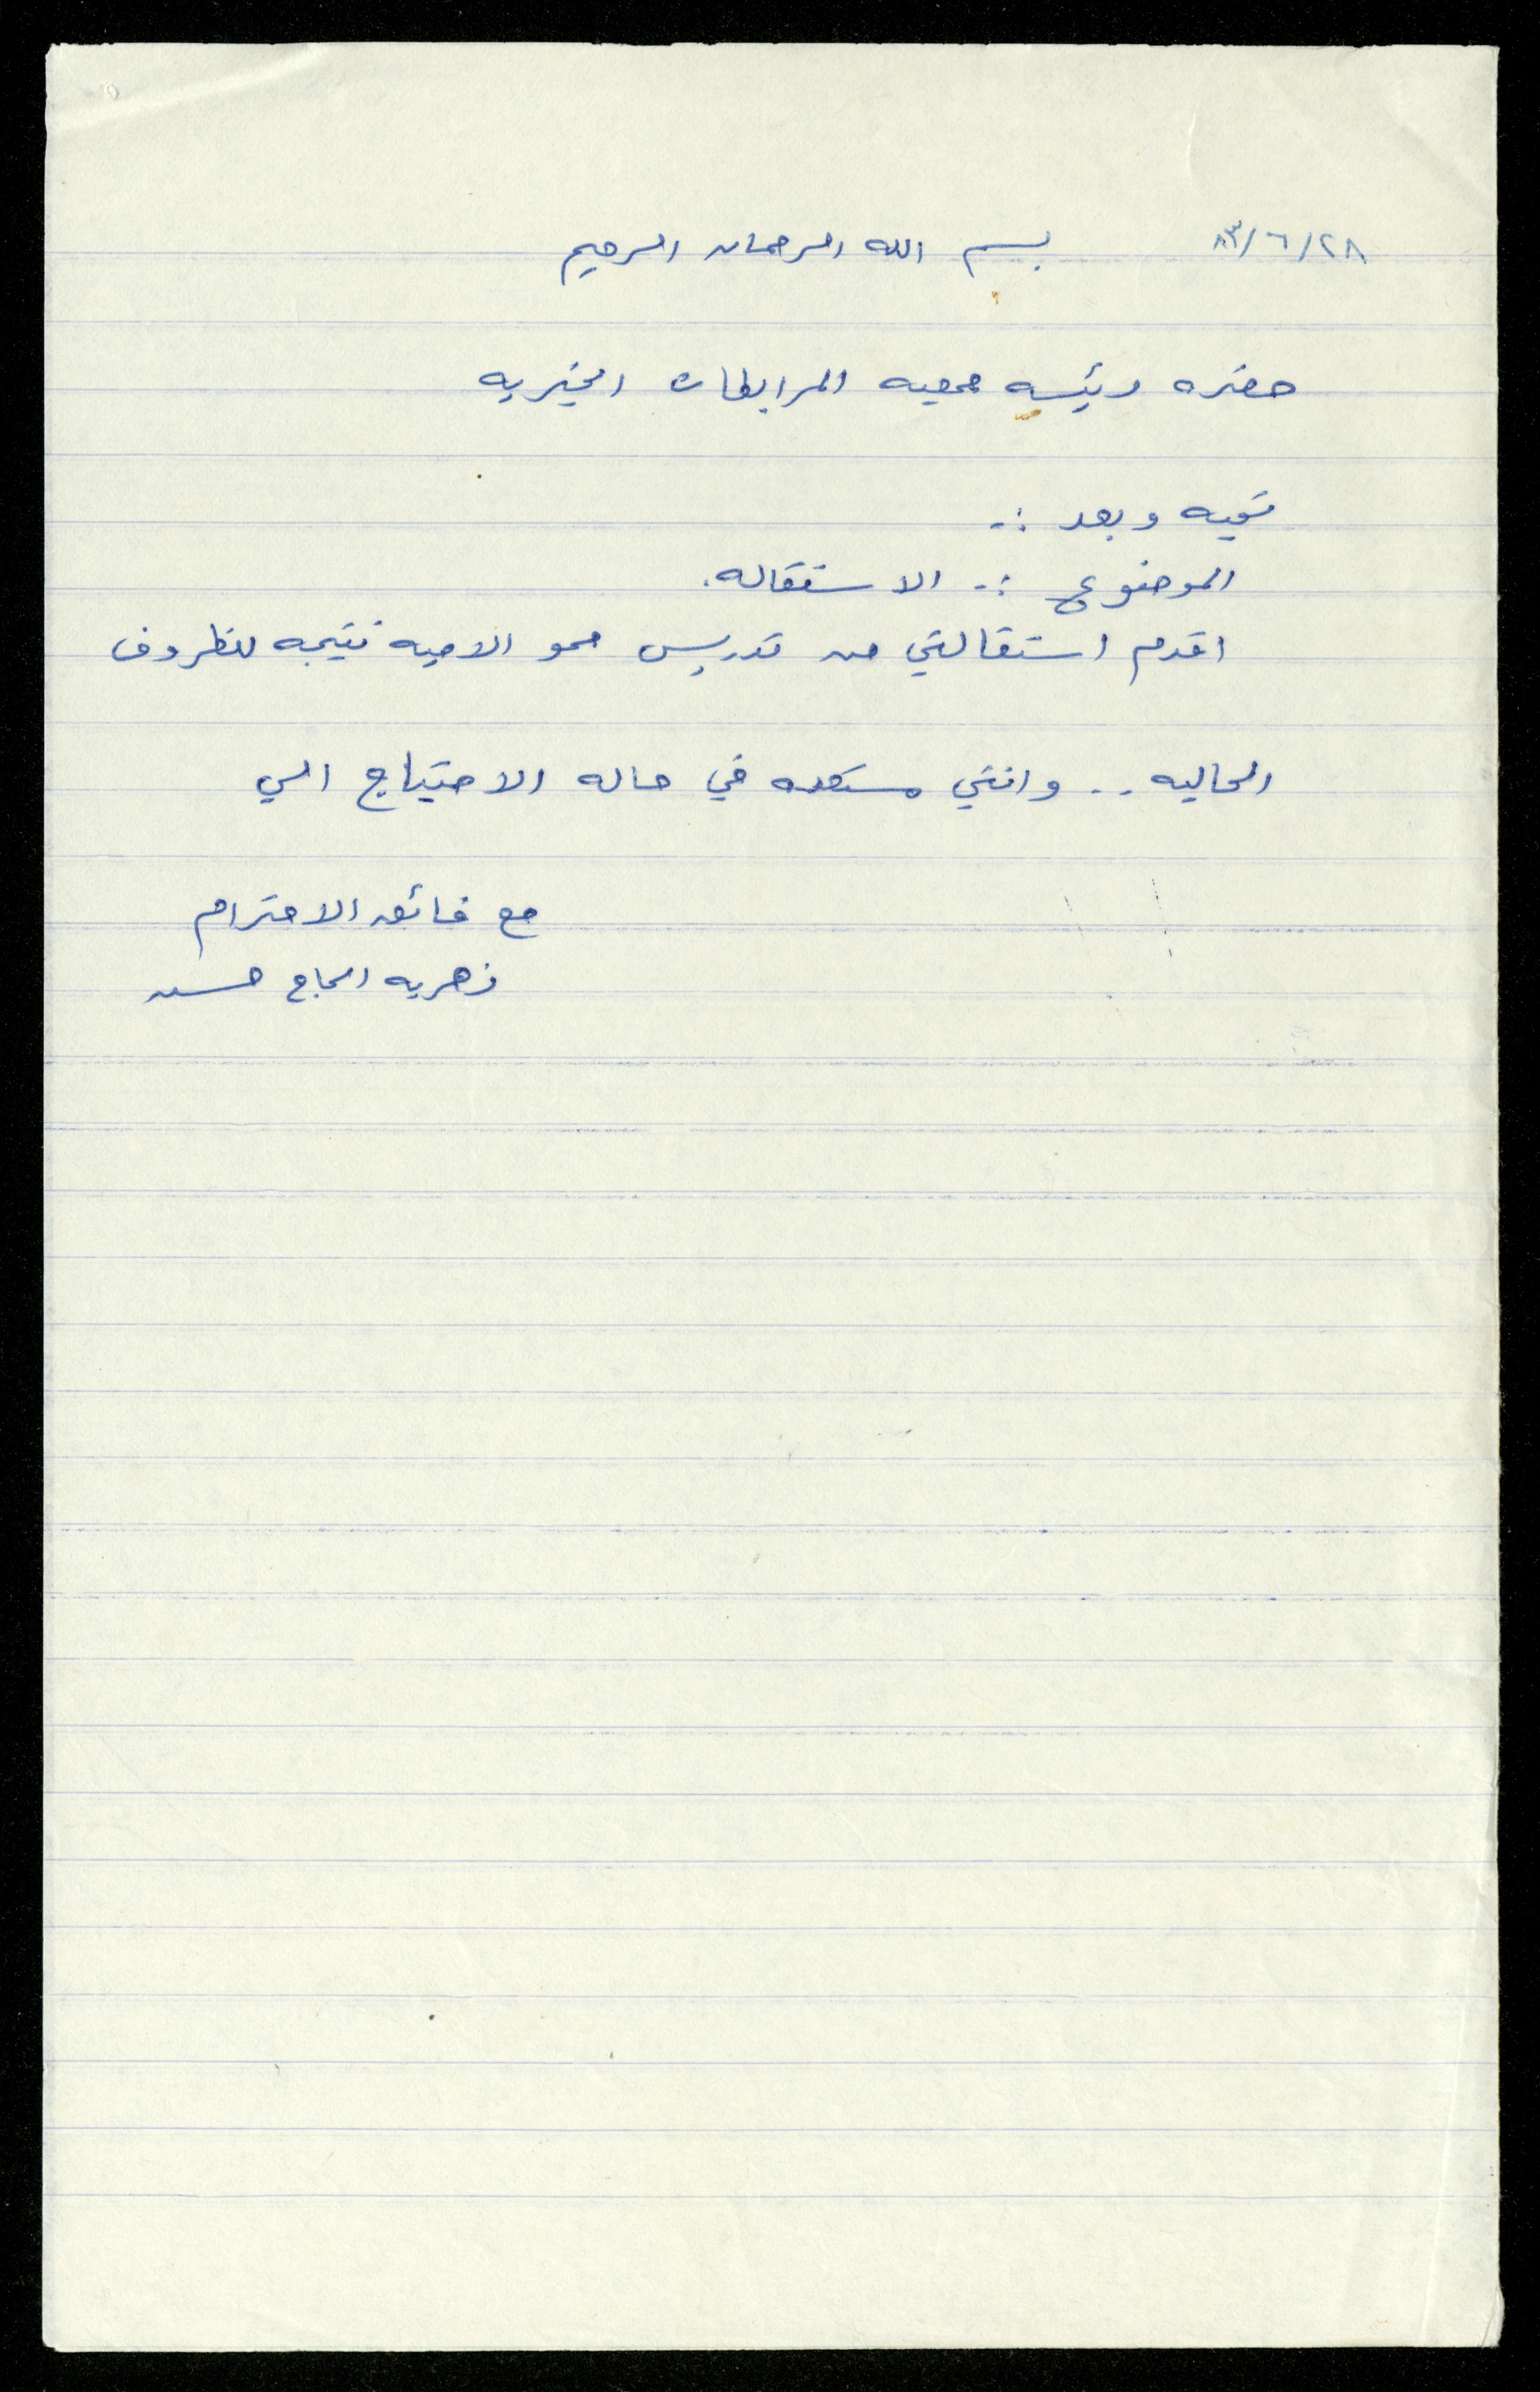 ٢٨/٦/٨٣ بسم الله الرحمان الرحيم
حضره رئيسه جمعيه المرابطات الخيريه
تحيه وبعد :-
الموضوع :- الاستقاله.
اقدم استقالتي من تدريس محو الاميه نتيجه للظروف
الحاليه .. وانني مستعده في حاله الاحتياج الي
مع فائق الاحترام
زهريه الحاج حسن